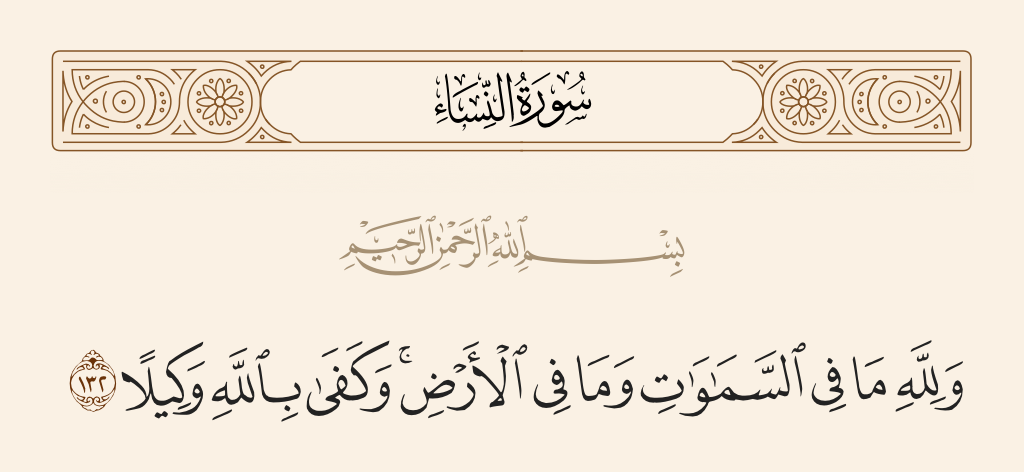 سُورَةُ النِّسَاءِ
بِسْمِ ٱللَّهِ ٱلرَّحْمَٰنِ ٱلرَّحِيمِ
وَلِلَّهِ مَا فِى ٱلسَّمَٰوَٰتِ وَمَا فِى ٱلْأَرْضِ ۚ وَكَفَىٰ بِٱللَّهِ وَكِيلًا ١٣٢